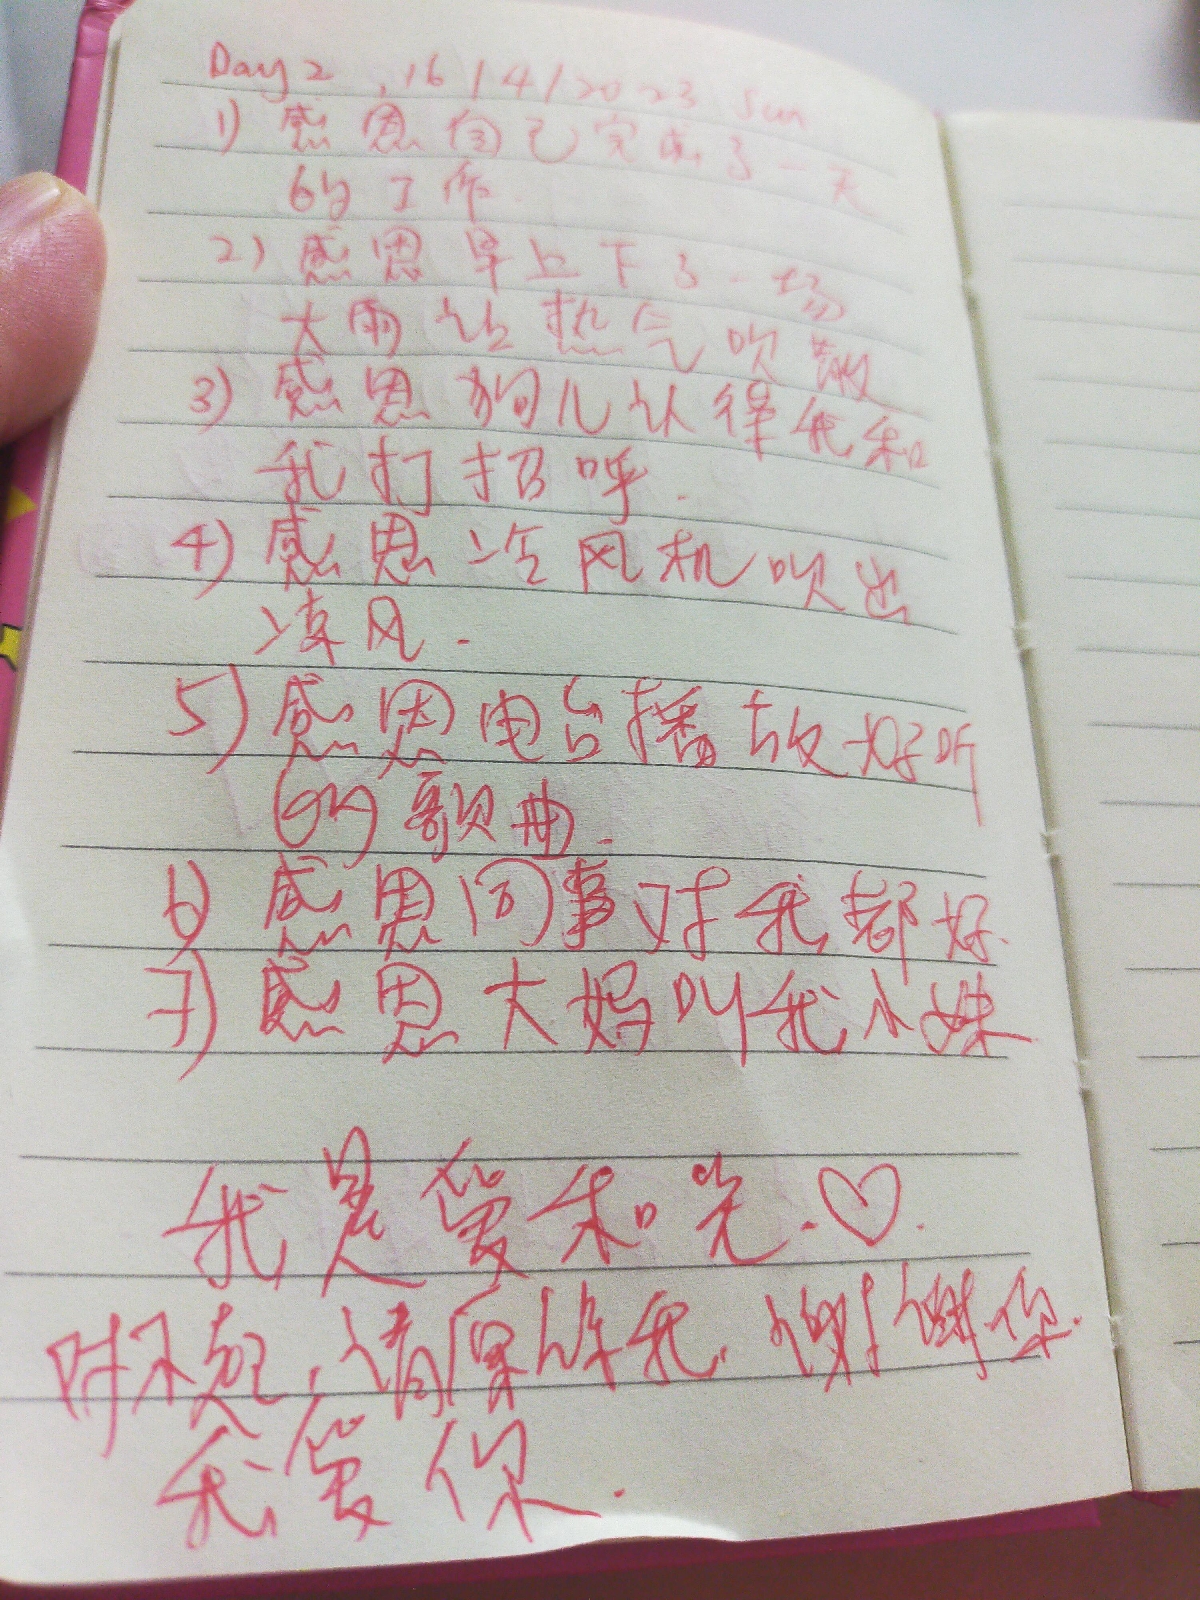 Day 2 , 16/4/2023 Sun
1) 感恩自己完成了一天
的工作.
2) 感恩早上下了一场
大雨让热气吹散
3) 感恩狗儿认得我和
我打招呼.
4) 感恩冷风机吹出
凉风.
5) 感恩电台播放好听
的歌曲.
6) 感恩同事对我都好.
7) 感恩大妈叫我小妹
我是爱和光.♡.
对不起,请原谅我,谢谢你.
我爱你.